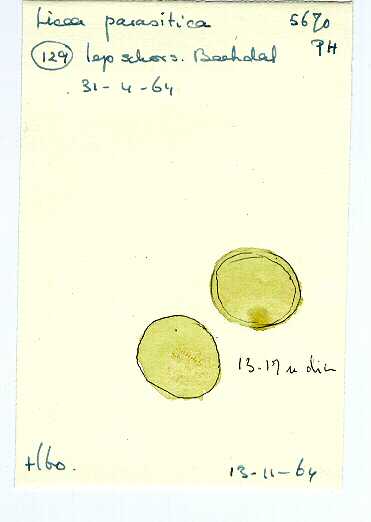 Licea parasitica 5670
PH
129 iep schors. Baakdal
31-4-64
13-17 u diam
+/60.
13-11-64